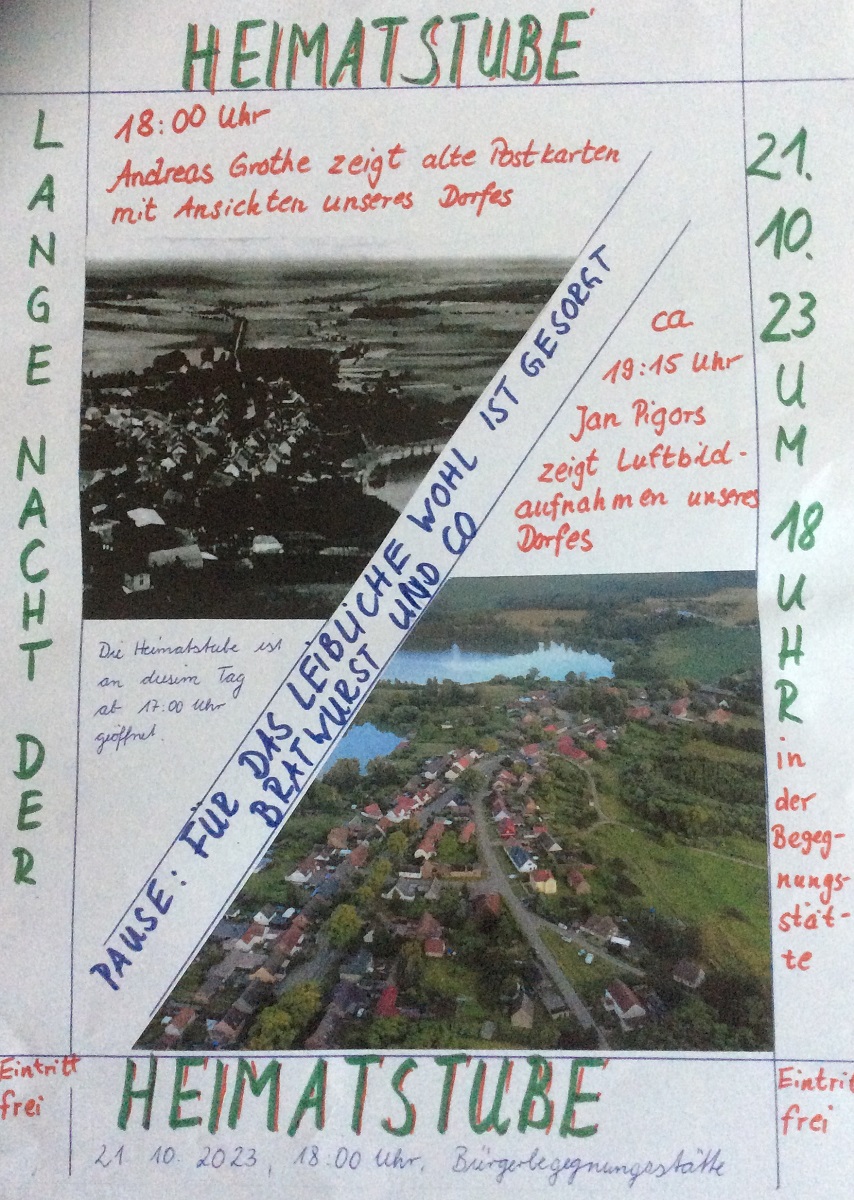 HEIMATSTUBE
LANGE NACHT DER
18:00 Uhr
Andreas Grothe zeigt alte Postkarten
mit Ansichten unseres Dorfes
21.
10.
23
UM
18
UHR
in
der
Begeg-
nungs-
stät-
te
ca
19:15 Uhr
Jan Pigors
zeigt Luftbild-
aufnahmen unseres
Dorfes
PAUSE: FÜR DAS LEIBLICHE WOHL IST GESORGT
BRATWURST UND CO
Die Heimatstube ist
an diesem Tag
ab 17:00 Uhr
geöffnet.
Eintritt
frei
HEIMATSTUBE
Eintrit
frei
21 10. 2023, 18.00 Uhr, Bürgerbegegnungsstätte